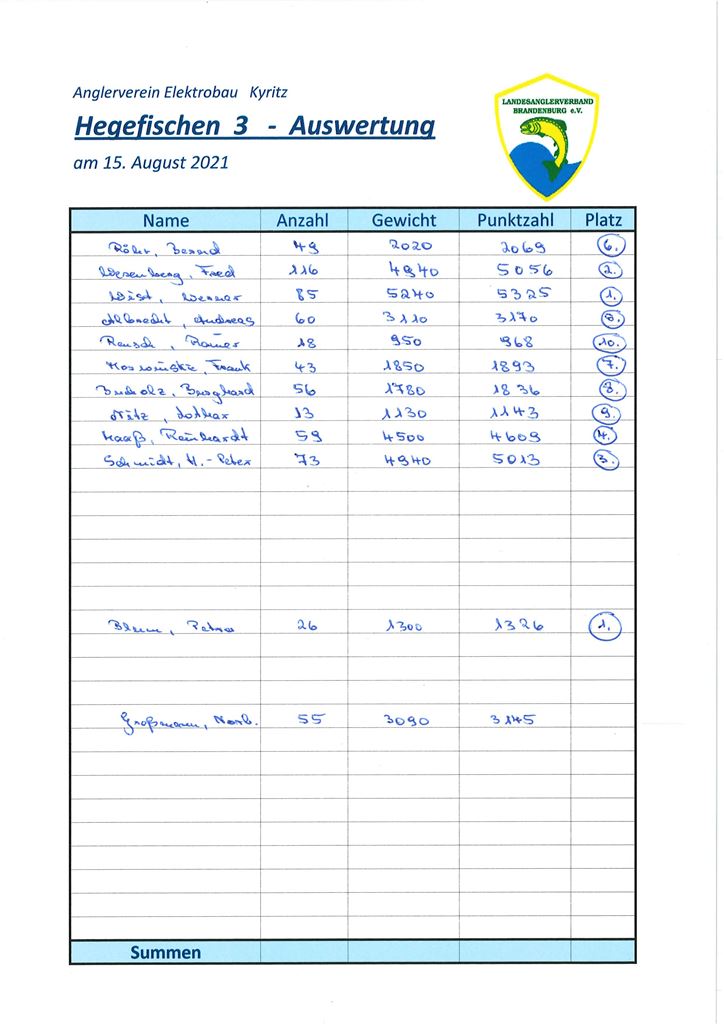 Anglerverein Elektrobau Kyritz
Hegefischen 3 - Auswertung
am 15. August 2021
LANDESANGLERVERBAND
BRANDENBURG e.V.
Name Anzahl Gewicht Punktzahl Platz
Röhr, Bernd 49 2020 2069 6.
Wesenberg, Fred 116 4940 5056 2.
Wüst, Werner 85 5240 5325 1.
Albrecht, Andreas 60 3110 3170
Rausch, Rainer 18 950 968 10.
Frank 43 1850 1893 7.
Buchholz, Burghard 56 1780 1836 8.
Nitz, Lothar 13 1130 1143 9.
Haaß, Reinhardt 59 4500 4609 4.
Schmidt, H.-Peter 73 4940 5013 3.
Blum, Petra 26 1300 1326 1.
Großmann, Norb. 55 3090 3145
Summen